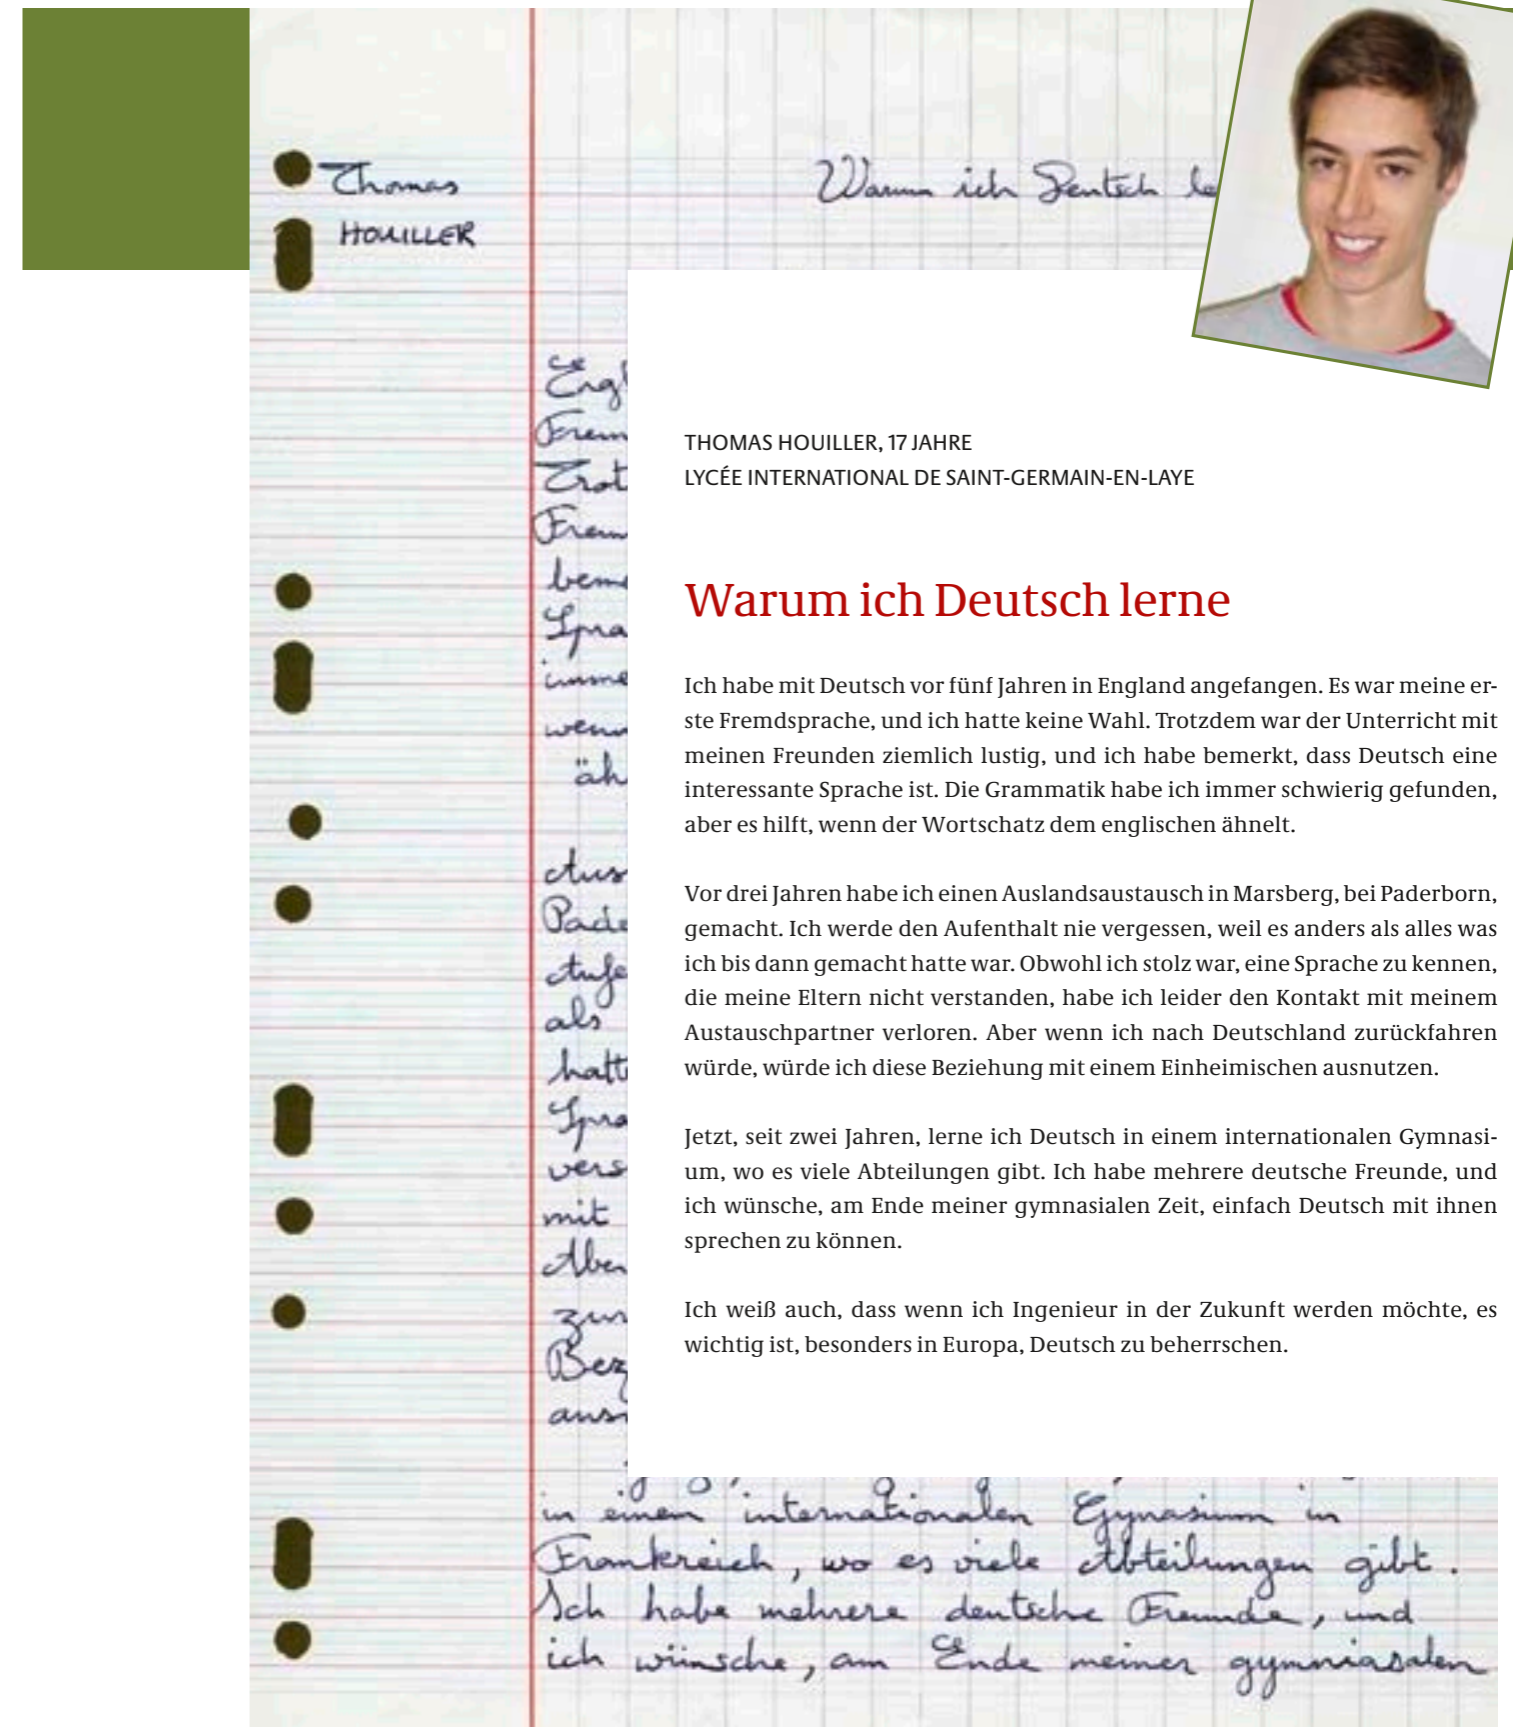 Thomas
HOUILLER
Warum ich Deutsch le
THOMAS HOUILLER, 17 JAHRE
LYCÉE INTERNATIONAL DE SAINT-GERMAIN-EN-LAYE
Warum ich Deutsch lerne
Ich habe mit Deutsch vor fünf Jahren in England angefangen. Es war meine er-
ste Fremdsprache, und ich hatte keine Wahl. Trotzdem war der Unterricht mit
meinen Freunden ziemlich lustig, und ich habe bemerkt, dass Deutsch eine
interessante Sprache ist. Die Grammatik habe ich immer schwierig gefunden,
aber es hilft, wenn der Wortschatz dem englischen ähnelt.
Vor drei Jahren habe ich einen Auslandsaustausch in Marsberg, bei Paderborn,
gemacht. Ich werde den Aufenthalt nie vergessen, weil es anders als alles was
ich bis dann gemacht hatte war. Obwohl ich stolz war, eine Sprache zu kennen,
die meine Eltern nicht verstanden, habe ich leider den Kontakt mit meinem
Austauschpartner verloren. Aber wenn ich nach Deutschland zurückfahren
würde, würde ich diese Beziehung mit einem Einheimischen ausnutzen.
Jetzt, seit zwei Jahren, lerne ich Deutsch in einem internationalen Gymnasi-
um, wo es viele Abteilungen gibt. Ich habe mehrere deutsche Freunde, und
ich wünsche, am Ende meiner gymnasialen Zeit, einfach Deutsch mit ihnen
sprechen zu können.
Ich weiß auch, dass wenn ich Ingenieur in der Zukunft werden möchte, es
wichtig ist, besonders in Europa, Deutsch zu beherrschen.
Engl
Frem
Trot
Freun
beme
Spra
imme
wenn
äh
Aus
Pade
Aufe
als
hatt
Spra
vers
mit
Aber
zur
Bez
ausn
in einem internationalen Gynasium in
Frankreich, wo es viele Abteilungen gibt.
Ich habe mehrere deutsche Freunde, und
ich wünsche, am Ende meiner gymniasalen